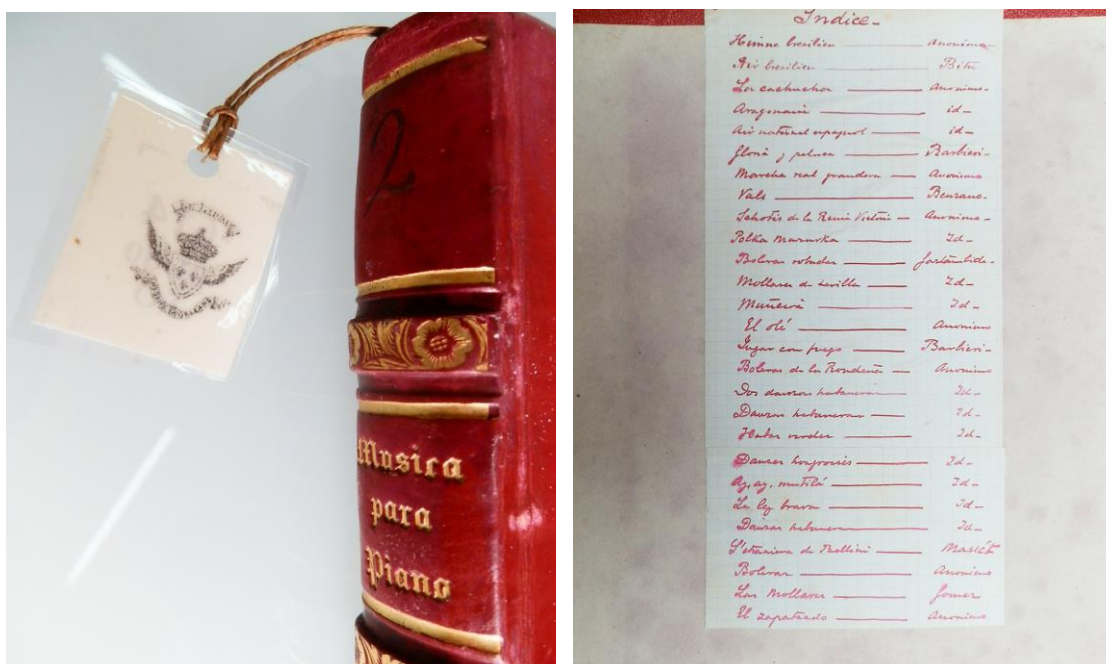 2
Musica
para
Piano
Indice -
Himno brésilien Anonimo
Air brésilien
Las cachuchas Anonimo -
Aragonaise id -
Air national espagnol id -
Gloria y peluca Barbieri -
Marcha real granadera Anonimo
Vals
Schotis de la Reina Victoria Anonimo -
Polka Mazurka Id -
Boleras robadas Gaztambide -
Mollares de Sevilla Id -
Muñeira Id -
El olé Anonimo
Jugar con fuego Barbieri -
Boleras de la Rondeña Anonimo
Dos danzas habaneras Id -
Danzas habaneras Id -
Habas verdes Id -
Danzas hongroises Id -
Ay, ay, mutilá Id -
La ley brava Id -
Danzas habaneras Id -
de Bellini
Boleras Anonimo
Las Mollares Gomez
El zapateado Anonimo